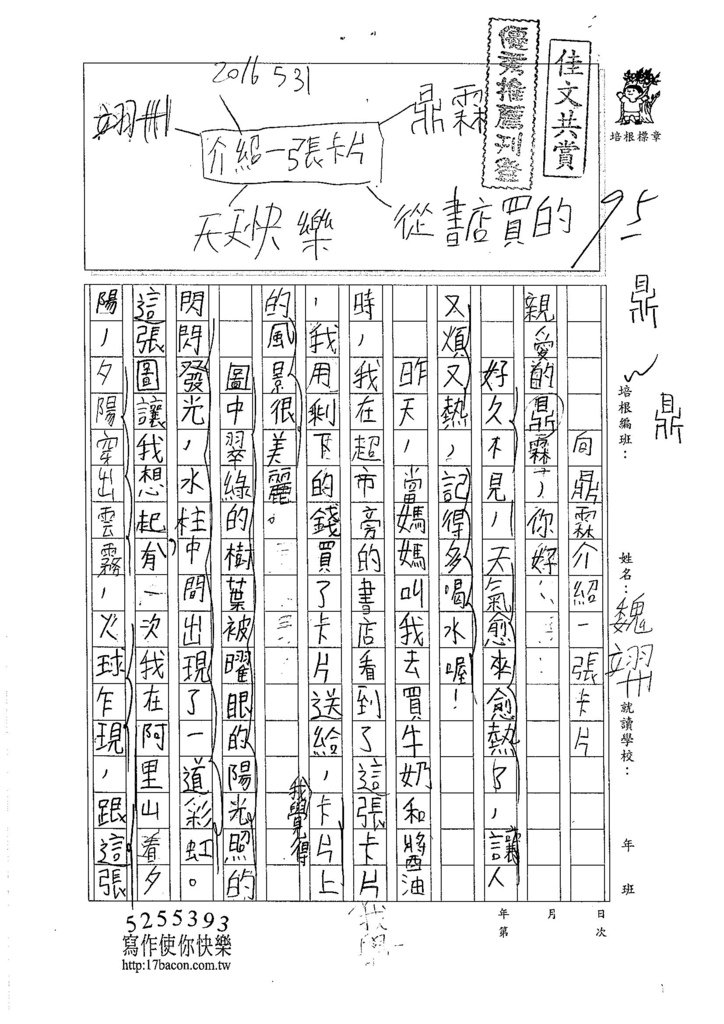 2016 5 31
翊卅
鼎霖
介紹一張卡片
天天快樂
從書店買的
優秀推薦刊登
佳文共賞
培根標章
95
鼎
鼎
培根編班：
姓名：魏翊卅
就讀學校：
年 班
向鼎霖介紹一張卡片
親愛的鼎霖，你好：
好久不見，天氣愈來愈熱了，讓人
又煩又熱，記得多喝水喔！
昨天，當媽媽叫我去買牛奶和醬油
時，我在超市旁的書店看到了這張卡片
，我用剩下的錢買了卡片送給，卡片上
我覺得
的風景很美麗。
圖中翠綠的樹葉被曜眼的陽光照的
閃閃發光，水柱中間出現了一道彩虹。
這張圖讓我想起有一次我在阿里山看夕
陽，夕陽穿出雲霧，火球乍現，跟這張
年 月 日
第 次
5255393
寫作使你快樂
http:17bacon.com.tw